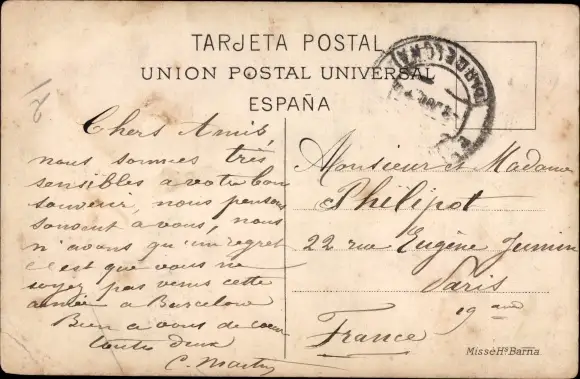 TARJETA POSTAL
UNION POSTAL UNIVERSAL
ESPAÑA
BARCELONA
Chers Amis,
nous sommes très
sensibles a votre bon
souvenir, nous pensons
souvent a vous, nous
n'avons qu'un regret
c'est que vous ne
soyez pas venus cette
année a Barcelone
Bien a vous de cœur
toutes deux
C. Martin
Monsieur et Madame
Philipot
22 rue Eugène Jumin
Paris
19
France
Missé Hs Barna